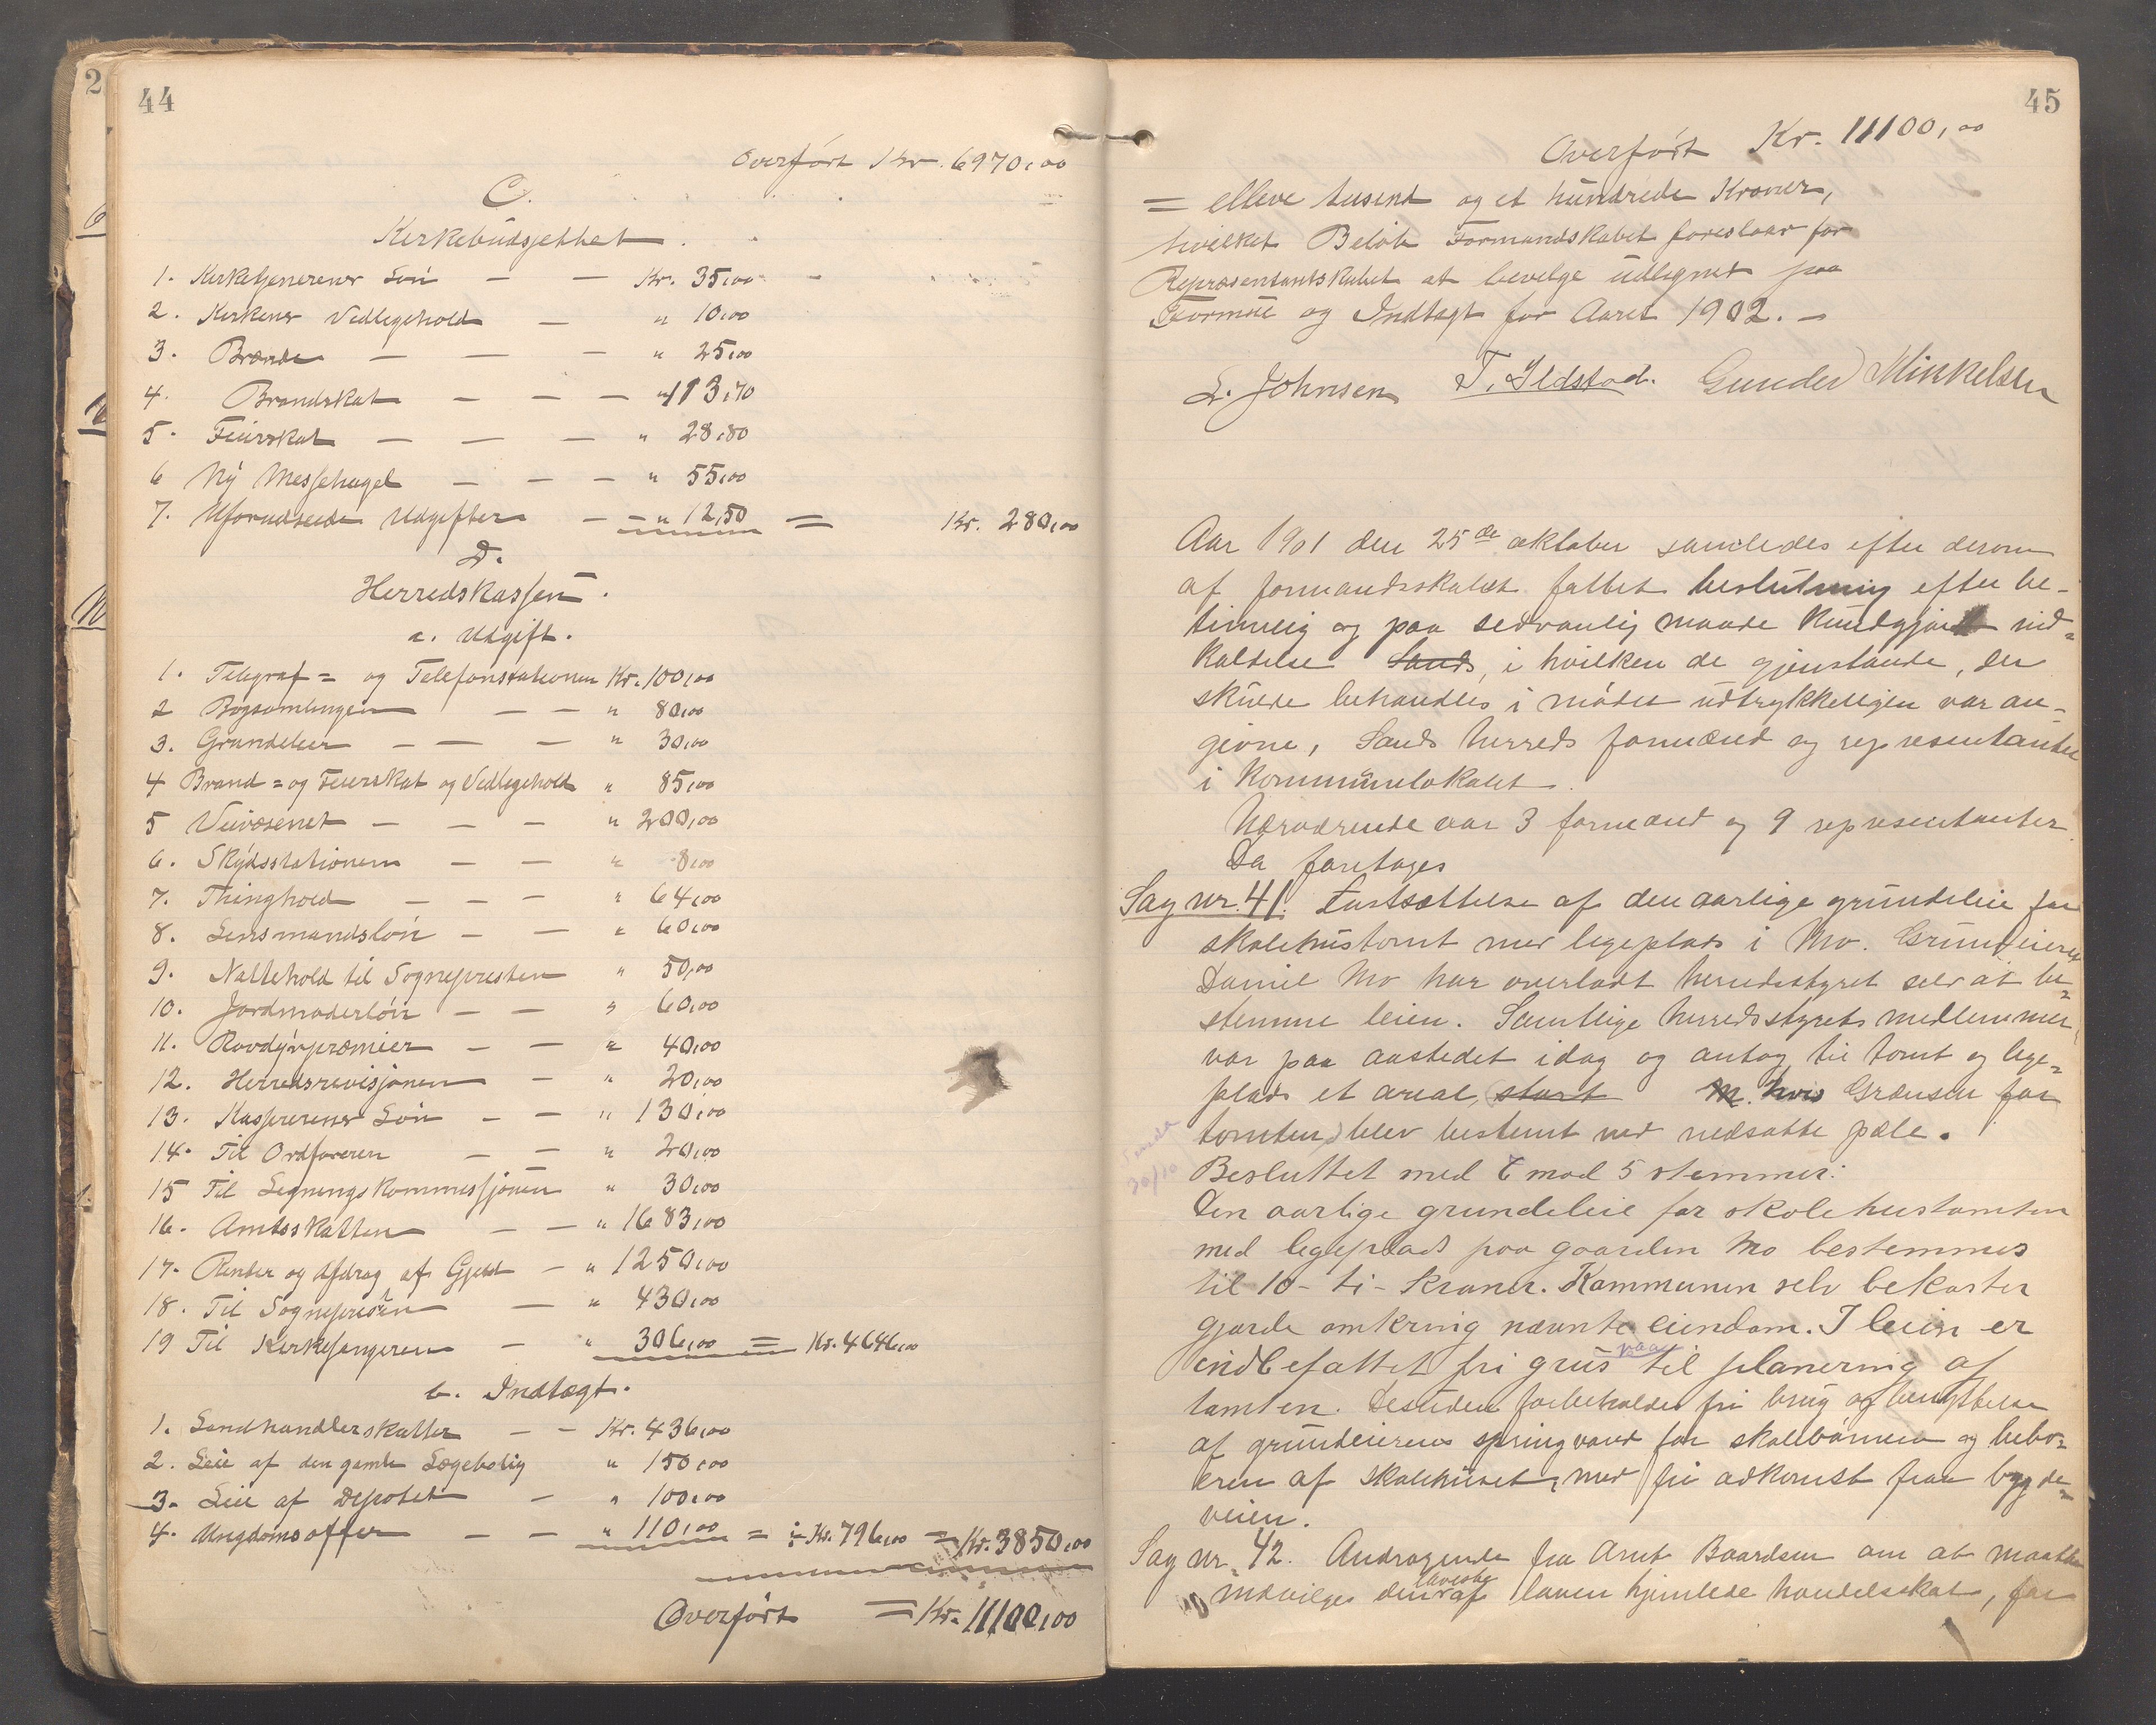 44
Overført Kr. 6970,00
C.
Kirkebudsjettet
1. Kirketjenerens Løn — — Kr. 35,00
2. Kirkens Vedligehold — " 10,00
3. Brænde — — — " 25,00
4. Brandskat — — — " 113,70
5. Feierskat — — — " 28,80
6 Ny Messehagel — — — " 55,00
7. Uforudseede Udgifter — — " 12,50 = Kr. 280,00
D.
Herredskassen.
a. Udgift.
1. Telegraf= og Telefonstationen Kr. 100,00
2 Bogsamlingen — — " 80,00
3. Grundeleie — — — " 30,00
4 Brand= og Feierskat og Vedligehold " 85,00
5 Veivæsenet — — — " 200,00
6. Skydsstationen — — " 8,00
7. Thinghold — — — " 64,00
8. Lensmandsløn — — " 60,00
9. Nattehold til Sognepresten " 50,00
10. Jordmoderløn — — " 60,00
11. Rovdyrpræmier — — " 40,00
12. Herredsrevisjonen — " 20,00
13. Kassererens Løn — — " 130,00
14. Til Ordføreren — — " 20,00
15 Til Legningskommissjonen " 30,00
16. Amtsskatten — — " 1683,00
17. Renter og Afdrag af Gjeld — " 1250,00
18. Til Sognepresten — " 430,00
19 Til Kirkesangeren — " 306,00 = Kr. 4646,00
b. Indtægt.
1. Landhandlerskatter — — Kr. 436,00
2. Leie af den gamle Lægebolig " 150,00
3. Leie af Depotet — " 100,00
4. Ungdomsoffer — — " 110,00 = ÷ Kr. 796,00 = Kr. 3850,00
Overført = Kr. 11100,00
45
Overført Kr. 11100,00
= elleve tusent og et hundrede Kroner,
hvilket Beløb Formandskabet foreslaar for
Repræsentantskabet at bevilge udlignet paa
Formue og Indtægt for Aaret 1902. —
L. Johnsen T. Ildstad. Gunder Minkelsen
Aar 1901 den 25de oktober samledes efter derom
af formandsskabet fattet beslutning efter be-
timelig og paa sedvanlig maade kundgjort ind=
kaldelse Sands, i hvilken de gjenstande, der
skulde behandles i mødet udtrykkeligen var an=
givne, Sands herreds formænd og representanter
i kommunelokalet.
Nærværende var 3 formænd og 9 representanter.
Da foretages
Sag nr. 41. Fastsættelse af den aarlige grundeleie for
skolehustomt med legeplads i Mo. Grundeieren
Daniel Mo har overladt herredsstyret selv at be=
stemme leien. Samtlige herredsstyrets medlemmer
var paa aastedet idag og antog til tomt og lege=
plads et areal, stort m. hvis Grænser for
tomten) blev bestemt ved nedsatte pæle.
30/10
Besluttet med 7 mod 5 stemmer:
Den aarlige grundeleie for skolehustomten
med legeplads paa gaarden Mo bestemmes
til 10 - ti - kroner. Kommunen selv bekoster
gjærde omkring nævnte eiendom. I leien er
indbefattet fri grus til planering af
paa
tomten. Desuden forbeholdes fri brug og benyttelse
af grundeierens springvand for skolebørnen og bebo=
eren af skolehuset, med fri adkomst fra bygde=
veien.
Sag nr. 42. Andragende fra Arnt Baardsen om at maatte
indvilges den laveste af loven hjemlede handelsskat, for